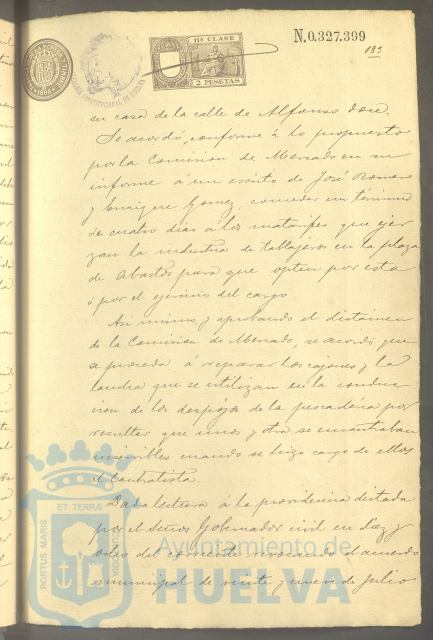 N.0.327.399
11ª CLASE
2 PESETAS
185
su casa de la calle de Alfonso doce.
Se acordó, conforme á lo propuesto
por la Comision de Mercado en su
informe á un escrito de José Romero
y Enrique Gomez, conceder un término
de cuatro dias á los matarifes que ejer
zan la industria de tablajeros en la plaza
de Abastos para que opten por esta
ó por el ejercicio del cargo
Asi mismo, y aprobando el dictamen
de la Comision de Mercado, se acordó que
se proceda á reparar los cajones y la
que se utilizan en la conduc
cion de los despojos de la pescadería por
resultar que unos y otra se encontraban
inservibles cuando se hizo cargo de ellos
el Contratista.
Dada lectura á la providencia dictada
por el Señor Gobernador civil en diez y
ocho del corriente revocando el acuerdo
municipal de veinte y nueve de Julio
PORTUS MARIS
ET TERRÆ
CUSTODIA
Ayuntamiento de
HUELVA